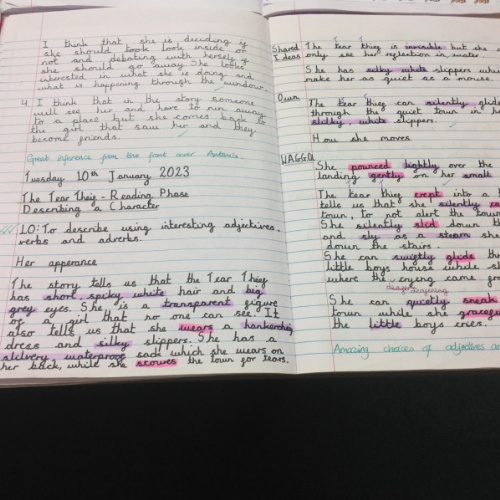 I think that she is deciding if
she should took look inside or
not and debating with herself if
she should go away. She looks
interested in what she is doing and
what is happening through the window.
4. I think that in the story someone
will see her and have to run away
to a place but she comes back to
the girl that saw her and they
become friends.
Great inference from the front cover
Tuesday 10th January 2023
The Tear Theif - Reading Phase
Describing a Character
LO: To describe using interesting adjectives,
verbs and adverbs.
Her apperance
The story tells us that the Tear Thief
has short, spiky, white hair and big
grey eyes. She is a transparent figure
of a girl that no one can see. It
also tells us that she wears a hankerchif
dress and silky slippers. She has a
silvery, waterproof sack which she wears on
her back, while she scowrs the town for tears.
Shared Ideas
The tear thief is invisible but she
only see her reflection in water.
She has silky white slippers which
make her as quiet as a mouse.
Own
The tear thief can silently glide
through the quiet town in her
silky white slippers.
How she moves
WAGGOL
She pounced lightly over the
landing gently on her small
The tear thief crept into a
tells us that she silently
town, to not alert the town
She silently slid down the
and sly as a steam she
down the stairs.
She can swiftly glide
little boys house while
where the crying came
She can quickly sneak
town while she
the little boys cries.
Amazing choices of adjectives